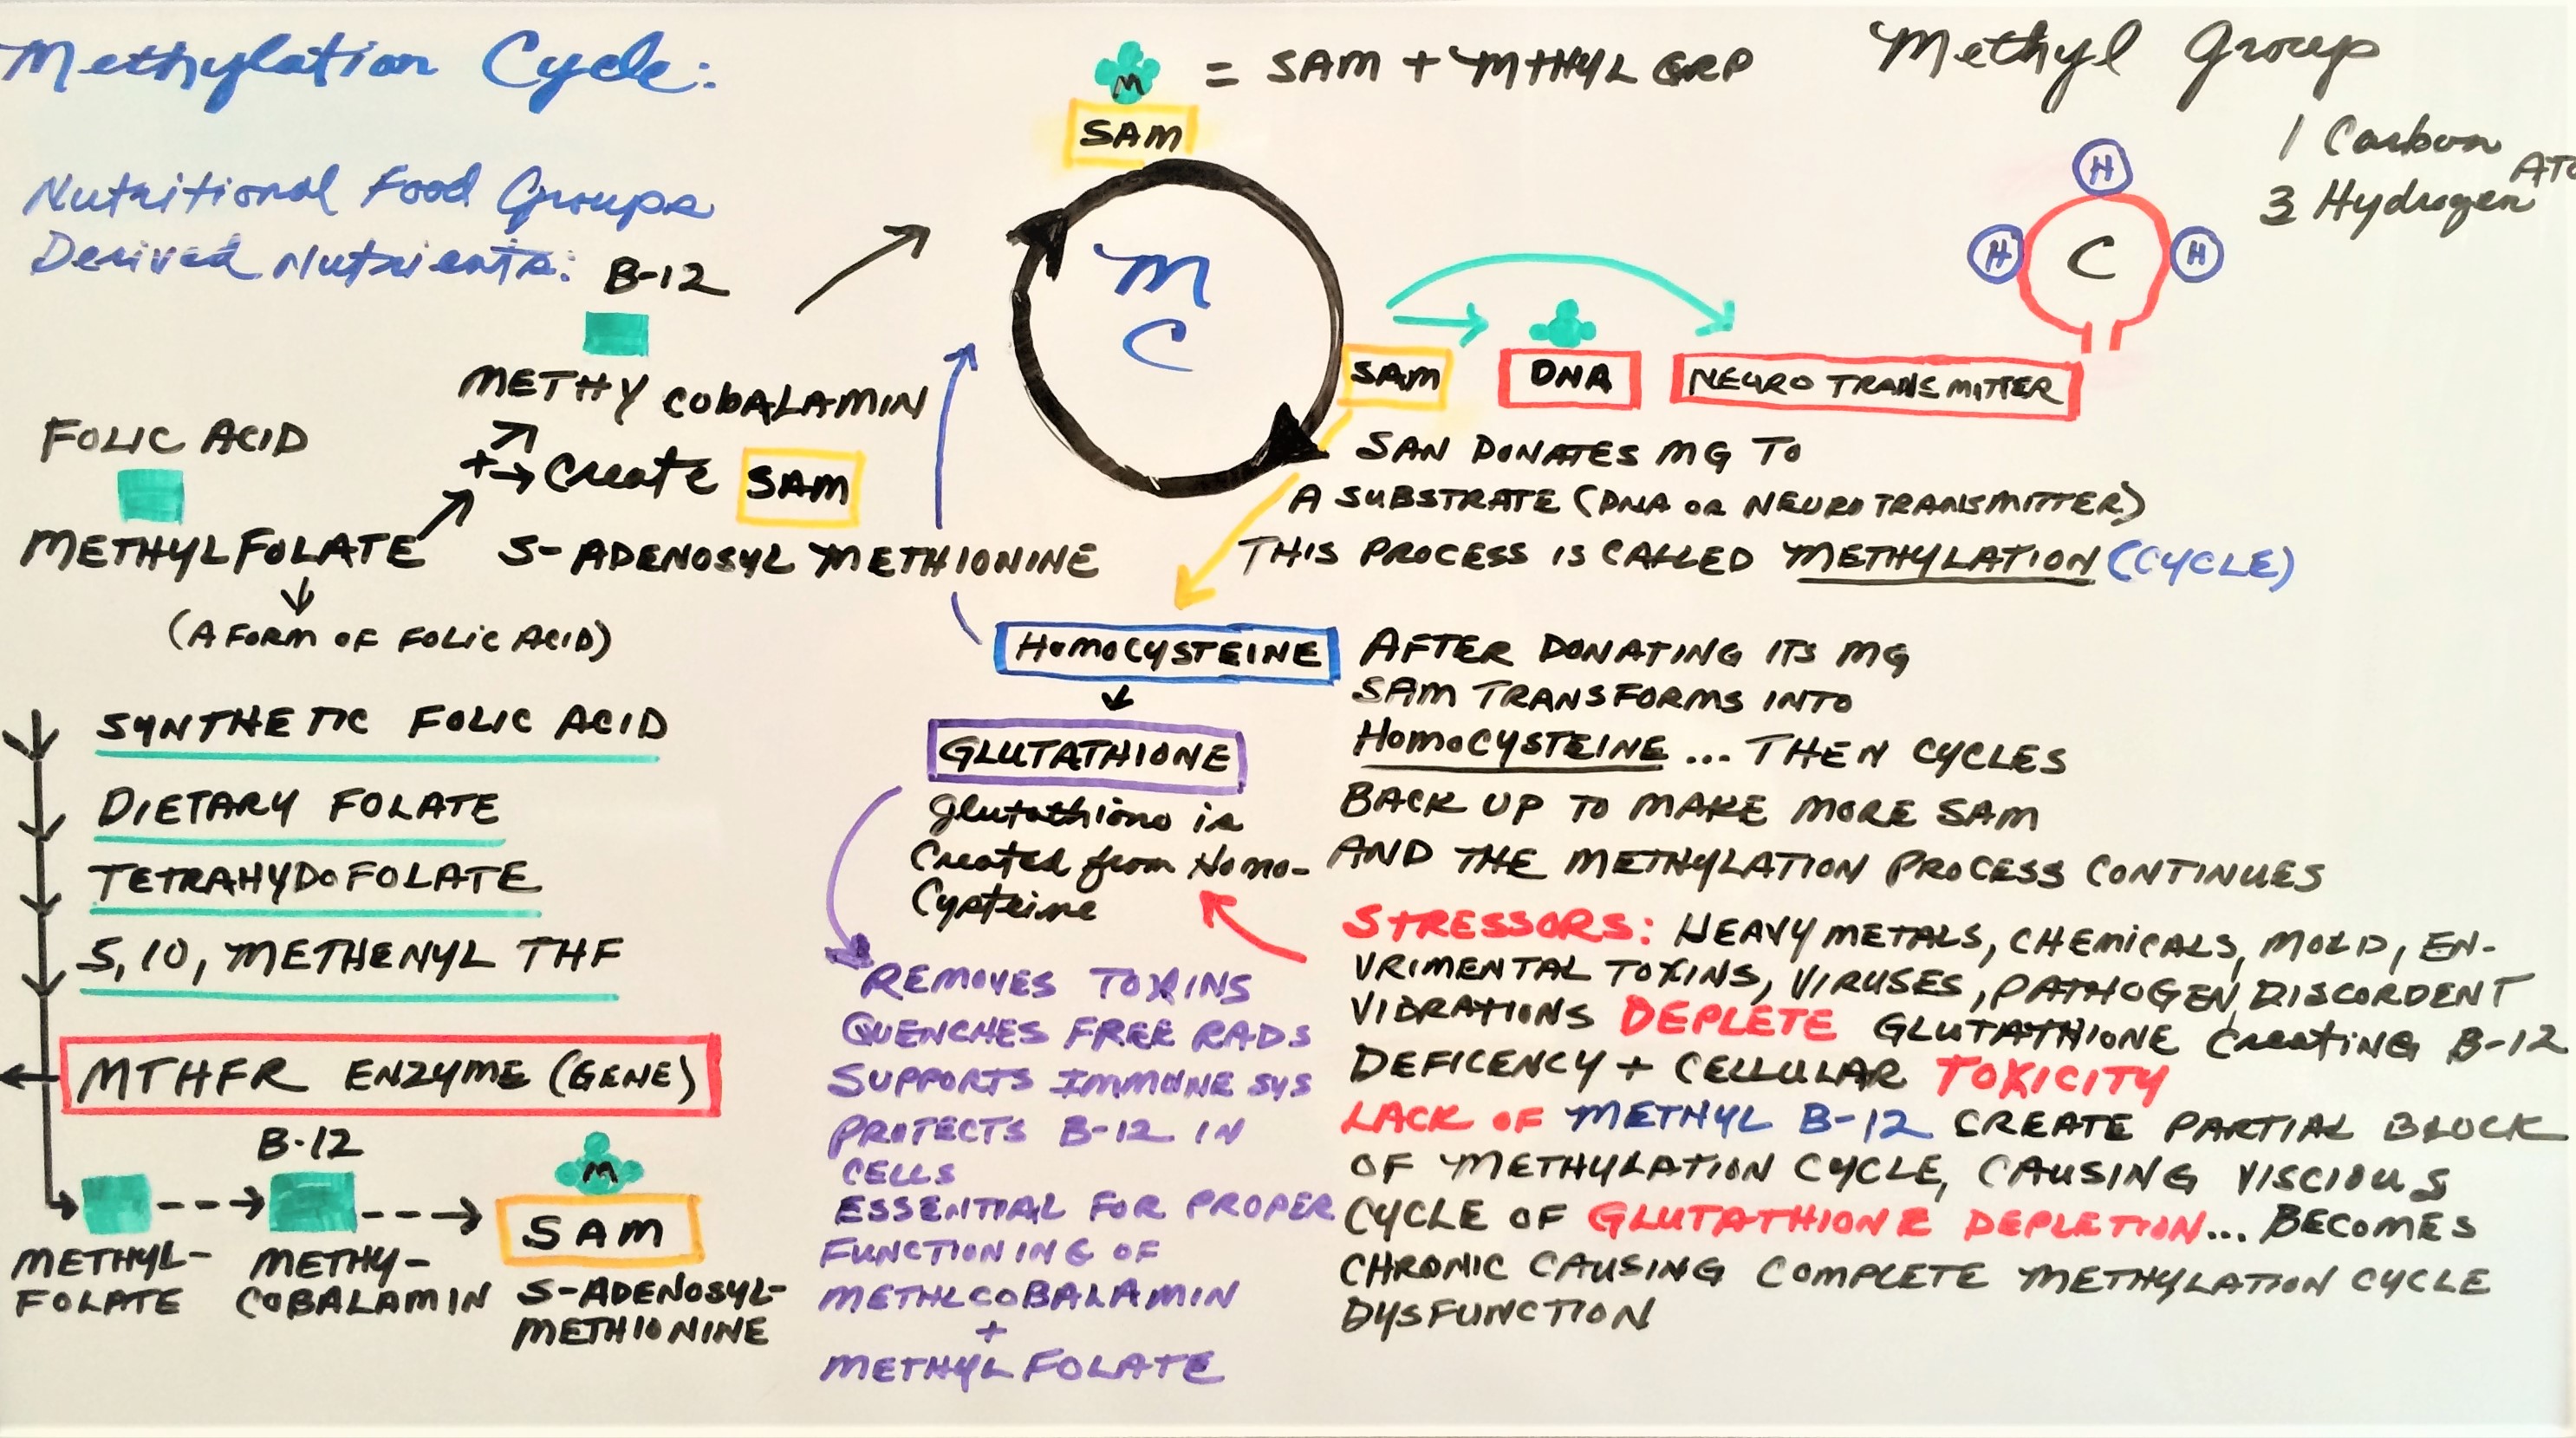 Methylation Cycle:
Nutritional Food Groups
Derived Nutrients:
B-12
METHY COBALAMIN
FOLIC ACID
+→ Create SAM
METHYLFOLATE
S-ADENOSYL METHIONINE
(A FORM OF FOLIC ACID)
SYNTHETIC FOLIC ACID
DIETARY FOLATE
TETRAHYDOFOLATE
5,10, METHENYL THF
MTHFR ENZYME (GENE)
B-12
M
SAM
METHYL-
FOLATE
METHY-
COBALAMIN
S-ADENOSYL-
METHIONINE
M
= SAM + MTHYL GRP
SAM
M
C
Methyl Group
1 Carbon
3 Hydrogen
ATO
H
H
C
H
SAM
DNA
NEURO TRANSMITTER
SAN DONATES MG TO
A SUBSTRATE (DNA OR NEURO TRANSMITTER)
THIS PROCESS IS CALLED METHYLATION (CYCLE)
HOMOCYSTEINE
GLUTATHIONE
Glutathione is
Created from Homo-
Cysteine
REMOVES TOXINS
QUENCHES FREE RADS
SUPPORTS IMMUNE SYS
PROTECTS B-12 IN
CELLS
ESSENTIAL FOR PROPER
FUNCTIONING OF
METHLCOBALAMIN
+
METHYL FOLATE
AFTER DONATING ITS MG
SAM TRANSFORMS INTO
HOMOCYSTEINE ... THEN CYCLES
BACK UP TO MAKE MORE SAM
AND THE METHYLATION PROCESS CONTINUES
STRESSORS: HEAVY METALS, CHEMICALS, MOLD, EN-
VRIMENTAL TOXINS, VIRUSES, PATHOGEN, DISCORDENT
VIBRATIONS DEPLETE GLUTATHIONE Creating B-12
DEFICENCY + CELLULAR TOXICITY
LACK OF METHYL B-12 CREATE PARTIAL BLOCK
OF METHYLATION CYCLE, CAUSING VISCIOUS
CYCLE OF GLUTATHIONE DEPLETION... BECOMES
CHRONIC CAUSING COMPLETE METHYLATION CYCLE
DYSFUNCTION